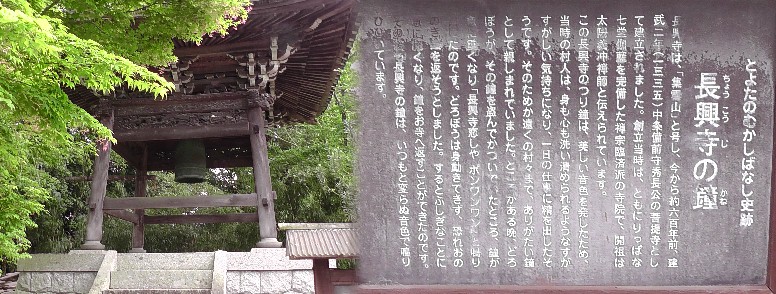 とよたのむかしばなし史跡
長興寺の鐘
ちょうこうじ かね
長興寺は、「集雲山」と号し、今から約六百年前、建
武二年(一三三五)中条備前守秀長公の菩提寺とし
て建立されました。創立当時は、ともにりっぱな
七堂伽藍を完備した禅宗臨済派の寺院で、開祖は
太陽義冲禅師と伝えられています。
この長興寺のつり鐘は、美しい音色を発したため、
当時の村人は、身も心も洗い清められるようなすが
すがしい気持ちになり、一日の仕事に精を出したそ
うです。そのためか遠くの村々まで、ありがたい鐘
として親しまれていました。ところがある晩、どろ
ぼうが、その鐘を盗んでかついでいたところ、鐘が
重くなり「長興寺恋しやボンワンワン」と鳴り
たのです。どろぼうは身動きできず、恐れおの
を返そうとしました。するとふしぎなことに
軽くなり、鐘をお寺へ返すことができたのです。
長興寺の鐘は、いつもと変らぬ音色で鳴り
いています。